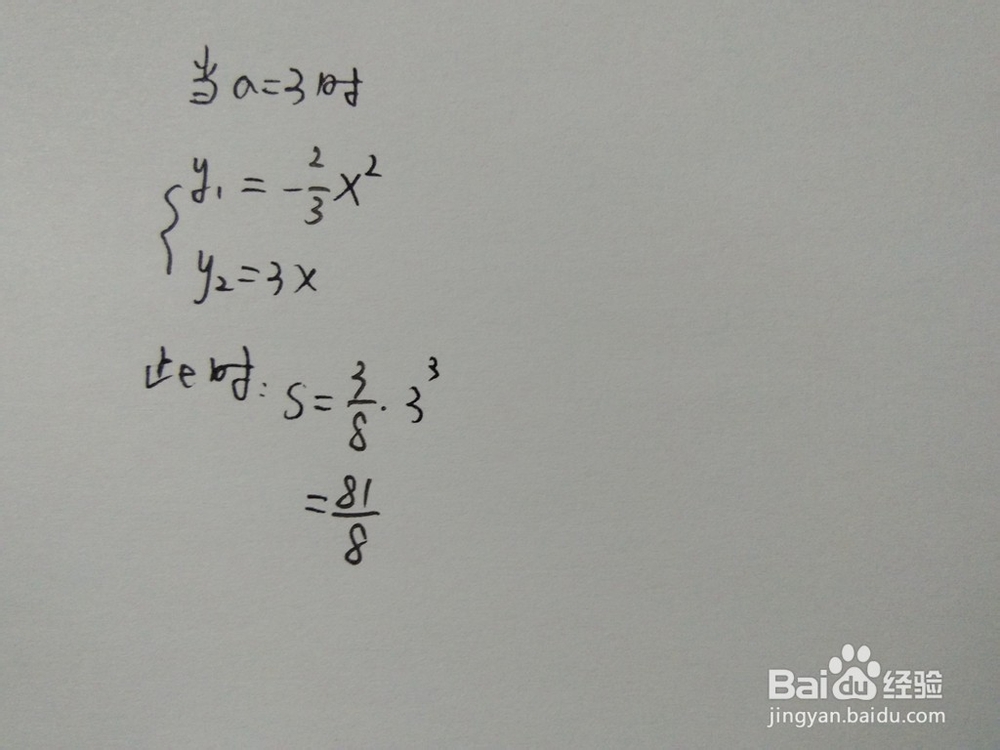 当a=3时
y₁=-2/3x²
y₂=3x
此时:S=3/8·3³
=81/8
Baidu经验
jingyan.baidu.com